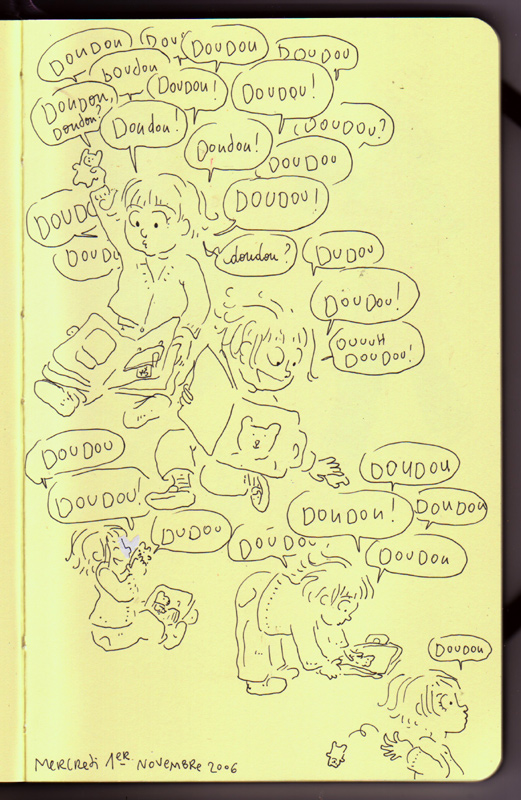 DOUDOU
DOUDOU
DOUDOU
DOUDOU
DOUDOU!
DOUDOU!
DOUDOU,
DOUDOU?
DOUDOU!
DOUDOU?
DOUDOU!
DOUDOU
DOUDOU!
doudou?
DUDOU
DOUDOU!
OUUUH
DOUDOU!
DOUDOU
DOUDOU!
DUDOU
DOUDOU
DOUDOU
DOUDOU!
DOUDOU
DOUDOU
DOUDOU
MERCREDI 1ER NOVEMBRE 2006